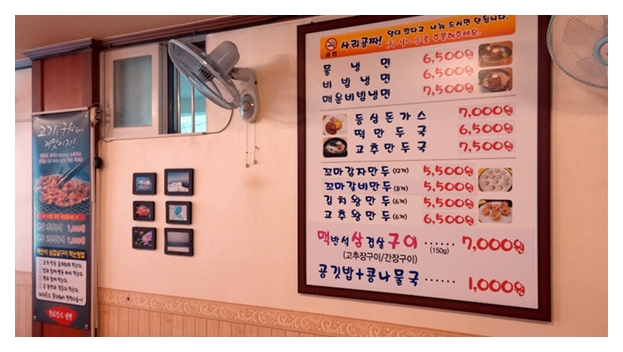 고기를 구워
더맛있지!
맥반석 삼겹살구이 먹는방법
사리공짜! 양이 많다고 나눠 드시면 안됩니다.
물냉면 6,500원
비빔냉면 6,500원
매운비빔냉면 7,500원
등심돈가스 7,000원
떡만두국 6,500원
고추만두국 7,500원
꼬마감자만두(12개) 5,500원
꼬마갈비만두(8개) 5,500원
김치왕만두(6개) 5,500원
고추왕만두(6개) 6,500원
맥반석삼겹살구이 ······ 7,000원
(고추장구이/간장구이) (150g)
공깃밥+콩나물국 ······ 1,000원